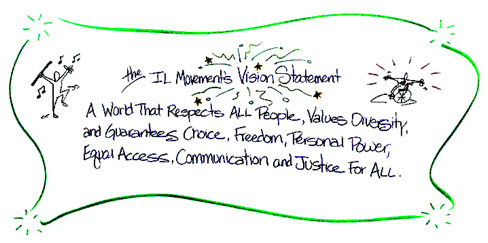 the IL Movement's Vision Statement
A World That Respects ALL People, Values Diversity,
and Guarantees Choice, Freedom, Personal Power,
Equal Access, Communication and Justice For ALL.